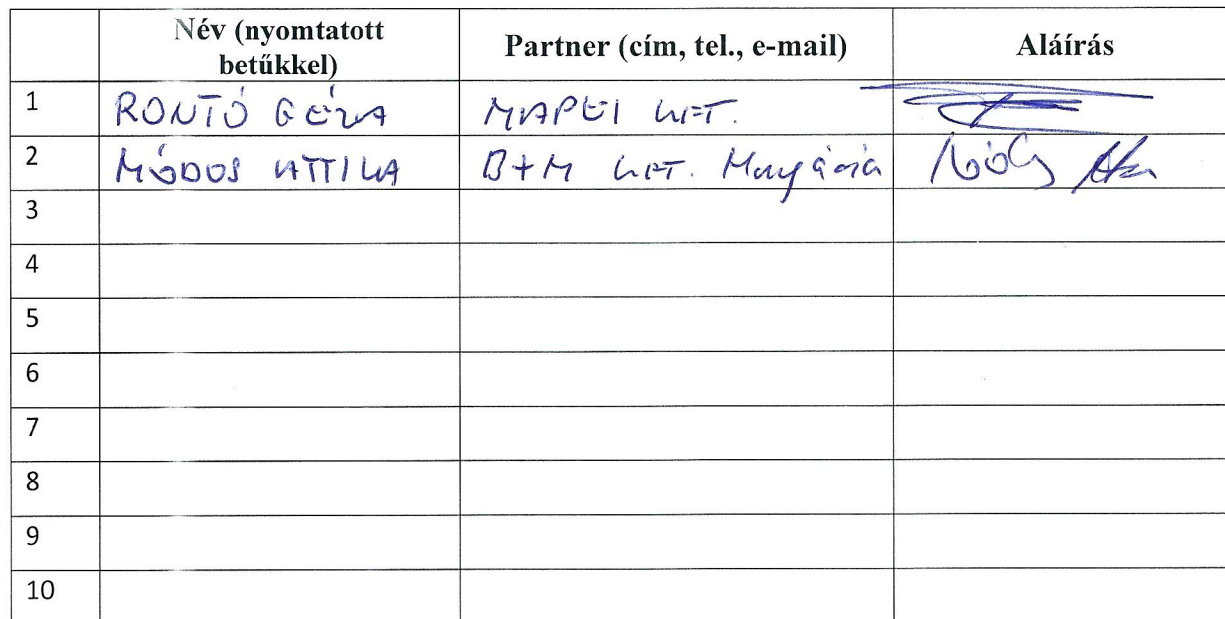 Név (nyomtatott betűkkel) Partner (cím, tel., e-mail) Aláírás
1 RONTÓ GÉZA MAPEI KFT.
2 MÓDOS ATTILA B+M KFT.
3
4
5
6
7
8
9
10